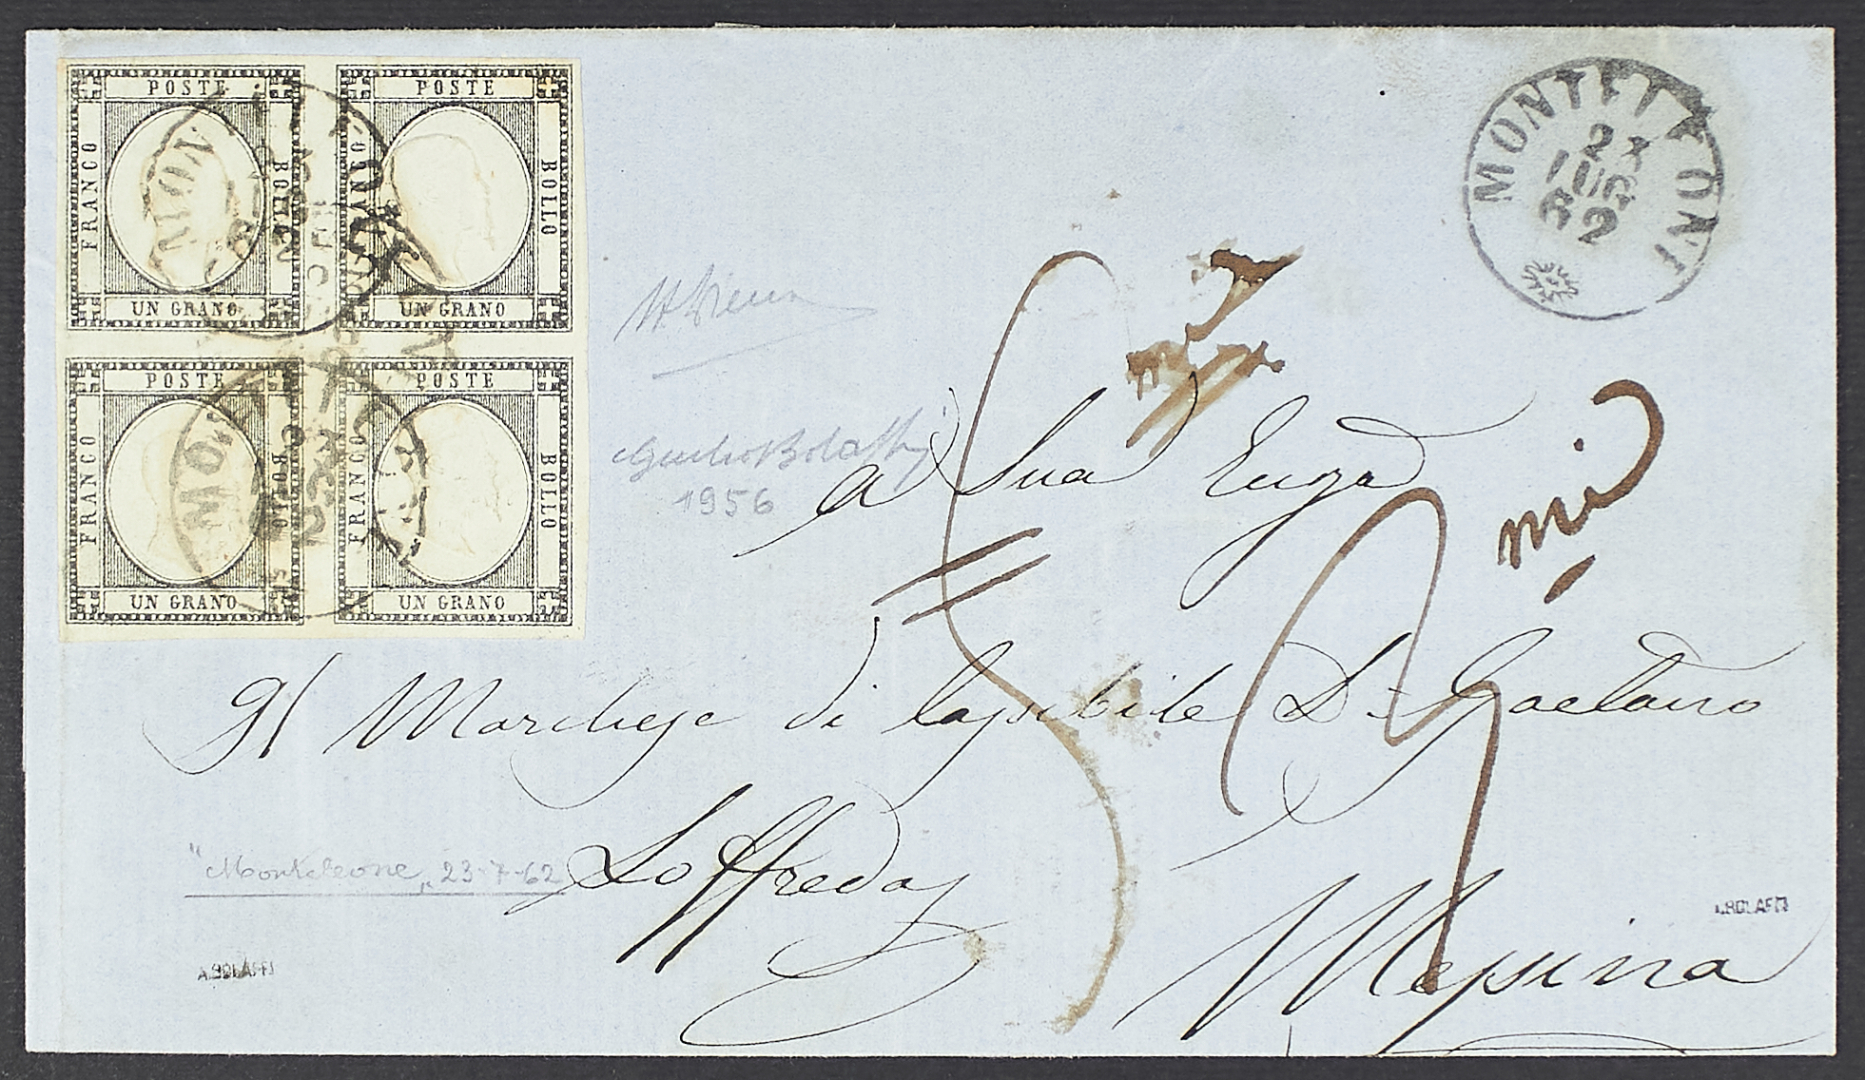 POSTE
FRANCO
BOLLO
UN GRANO
POSTE
FRANCO
BOLLO
UN GRANO
POSTE
FRANCO
BOLLO
UN GRANO
POSTE
FRANCO
BOLLO
UN GRANO
LUG
62
1956
a Sua
Il Marchese di Cassibile D. Gaetano
Loffredo
Messina
"Monteleone„ 23-7-62
A.BOLAFFI
A.BOLAFFI